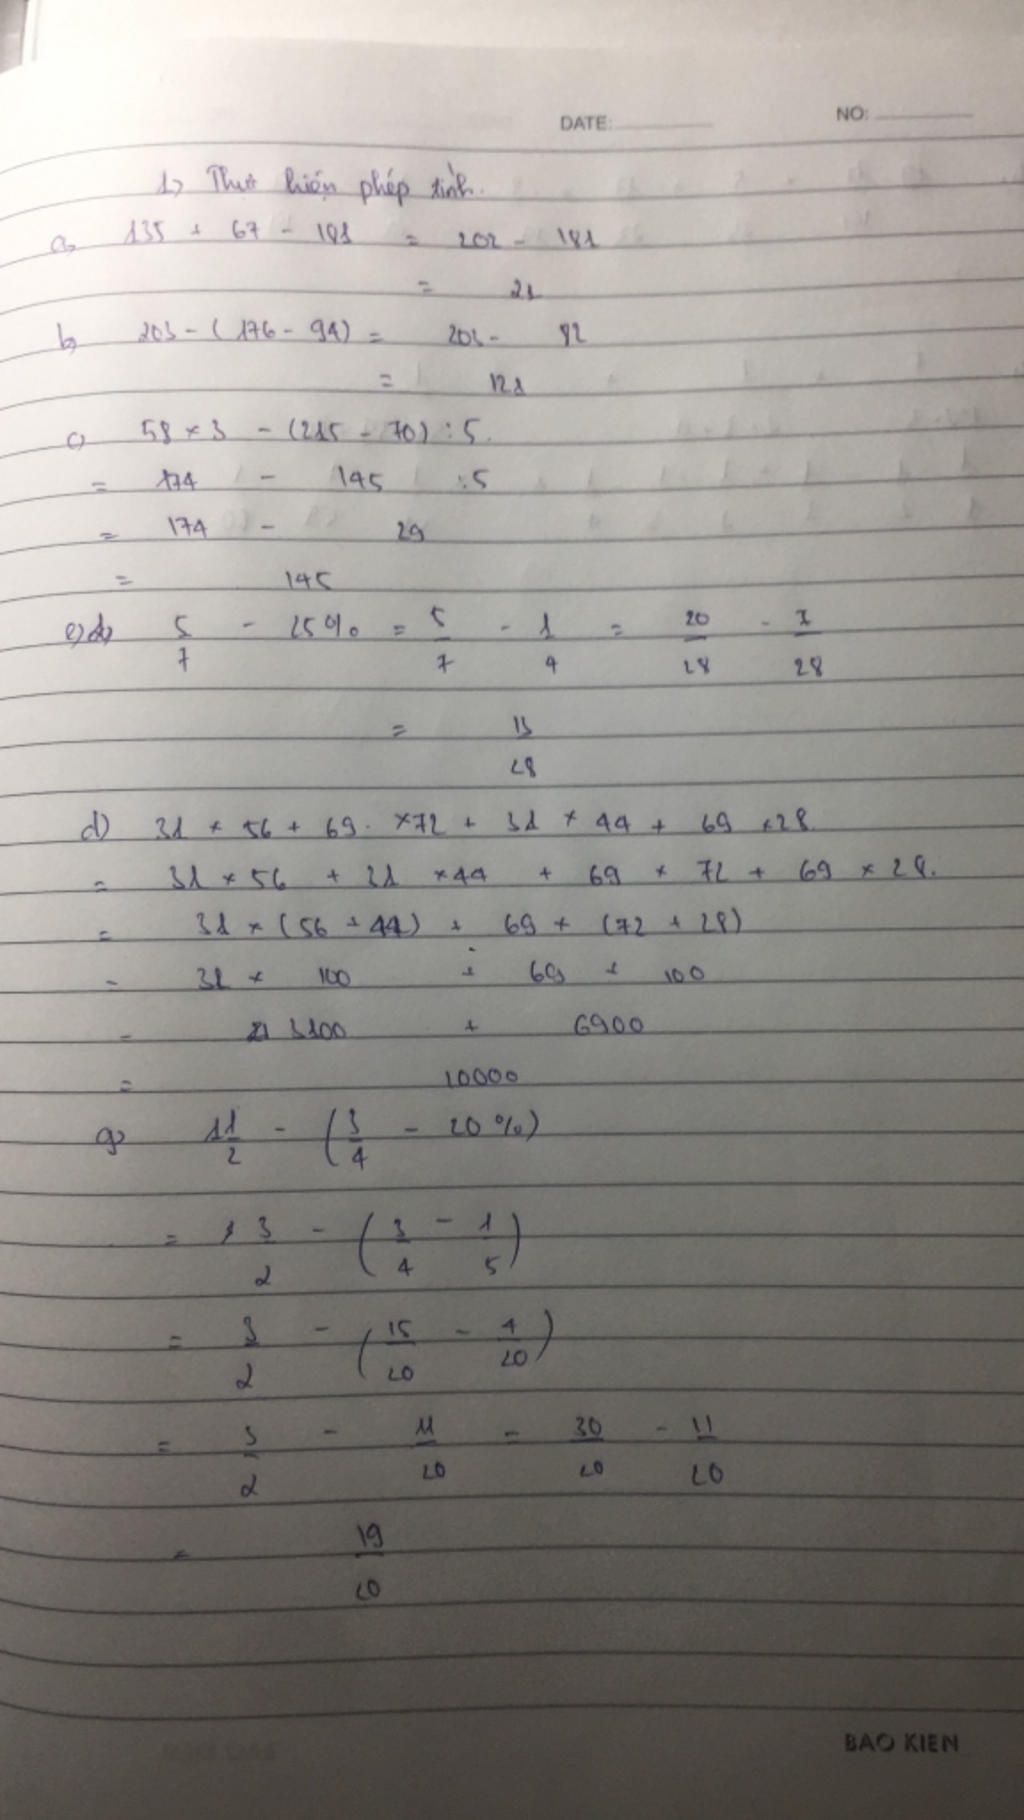 DATE: NO:
1) Thực hiện phép tính.
a) 135 + 67 - 181 = 202 - 181
= 21
b) 203 - (176 - 94) = 203 - 82
= 121
c) 58 × 3 - (215 - 70) : 5.
= 174 - 145 : 5
= 174 - 29
= 145
e) 5/7 - 25% = 5/7 - 1/4 = 20/28 - 7/28
= 13/28
d) 31 × 56 + 69 . × 72 + 31 × 44 + 69 × 28.
= 31 × 56 + 31 × 44 + 69 × 72 + 69 × 28.
= 31 × (56 + 44) + 69 × (72 + 28)
= 31 × 100 + 69 × 100
= 3100 + 6900
= 10000
g) 1 1/2 - (3/4 - 20%)
= 3/2 - (3/4 - 1/5)
= 3/2 - (15/20 - 4/20)
= 3/2 - 11/20 = 30/20 - 11/20
= 19/20
BAO KIEN